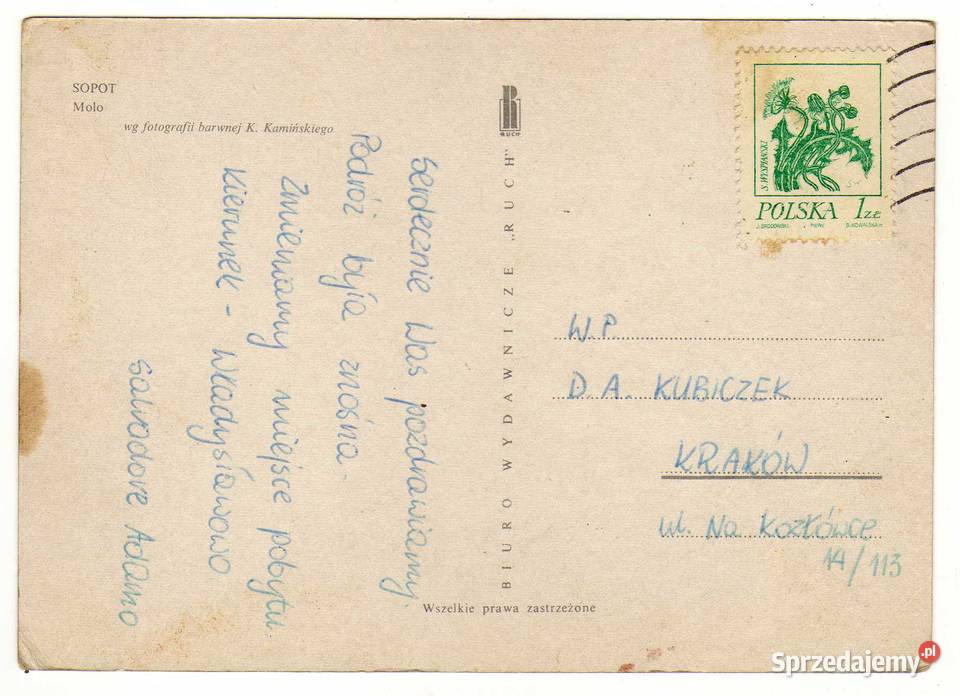 SOPOT
Molo
wg fotografii barwnej K. Kamińskiego
Serdecznie Was pozdrawiamy.
Podróż była znośna.
Zmieniamy miejsce pobytu
Kierunek - Władysławowo
Salvadore Adamo
R
RUCH
BIURO WYDAWNICZE „RUCH"
Wszelkie prawa zastrzeżone
S. WYSPIAŃSKI
POLSKA 1 ZŁ
W.P
D.A. KUBICZEK
KRAKÓW
ul. Na Kozłówce
14/113
Sprzedajemy.pl